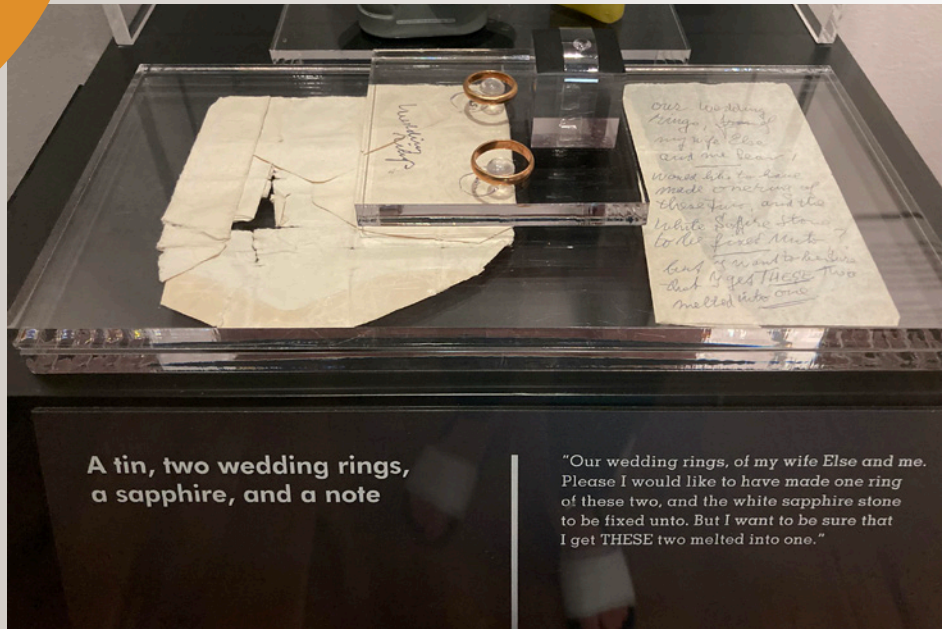 Wedding
rings
our wedding
rings, from
my wife Else
and me
would like to have
made one ring of
these two, and the
White Saffire Stone
to be fixed unto
but I want to be sure
that I get THESE two
melted into one
A tin, two wedding rings,
a sapphire, and a note
"Our wedding rings, of my wife Else and me.
Please I would like to have made one ring
of these two, and the white sapphire stone
to be fixed unto. But I want to be sure that
I get THESE two melted into one."